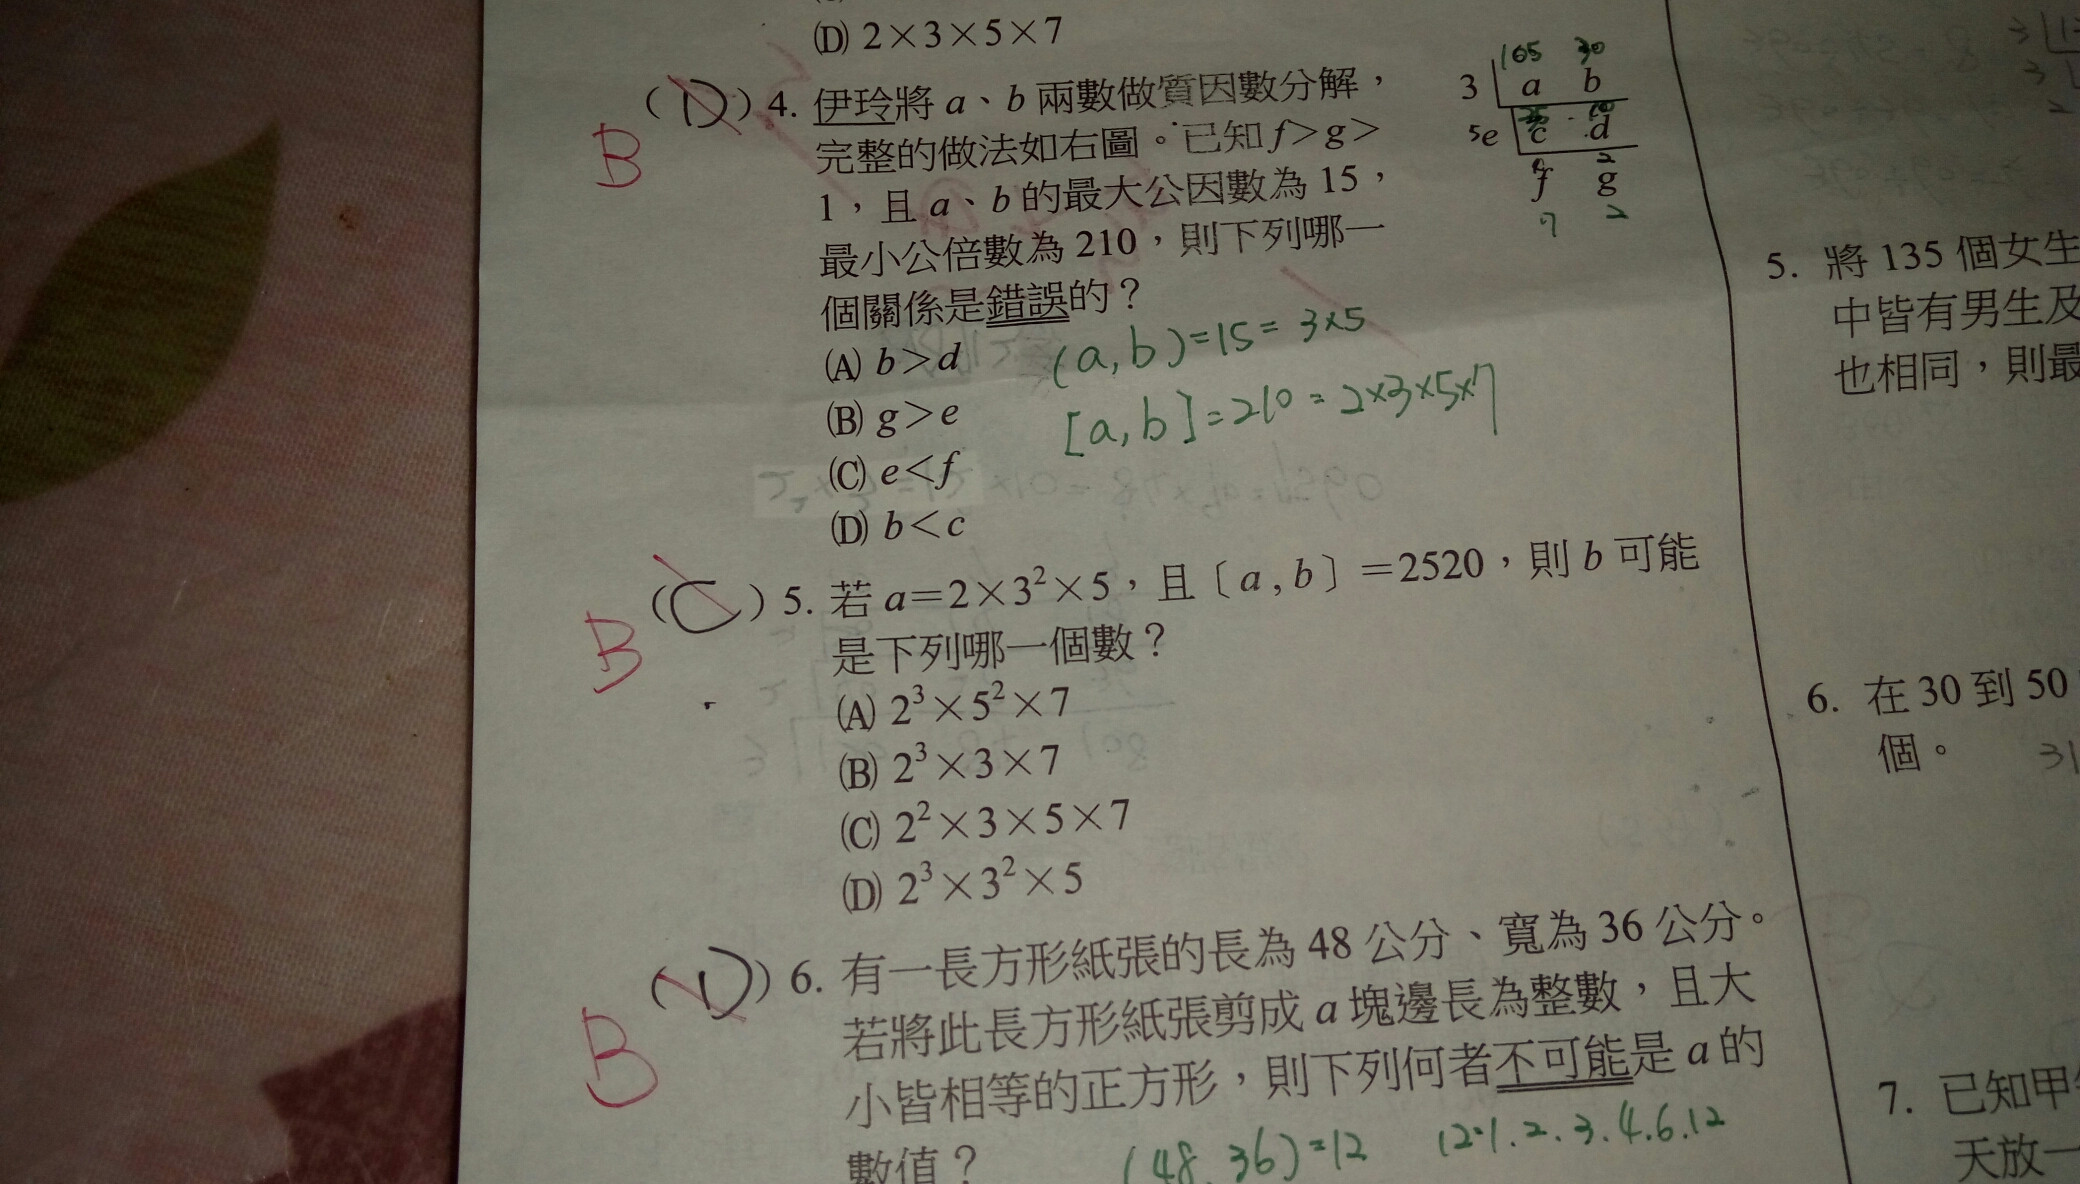 (D) 2×3×5×7
(D) 4. 伊玲將 a、b 兩數做質因數分解，
完整的做法如右圖。已知 f>g>
1，且 a、b 的最大公因數為 15，
最小公倍數為 210，則下列哪一
個關係是錯誤的？
(A) b>d
(B) g>e
(C) e<f
(D) b<c
B
105 30
3 a b
5e c d
f g
7 2
(a, b)=15= 3×5
[a, b]=210=2×3×5×7
(C) 5. 若 a=2×3²×5，且〔a , b〕=2520，則 b 可能
是下列哪一個數？
(A) 2³×5²×7
(B) 2³×3×7
(C) 2²×3×5×7
(D) 2³×3²×5
B
(D) 6. 有一長方形紙張的長為 48 公分、寬為 36 公分。
若將此長方形紙張剪成 a 塊邊長為整數，且大
小皆相等的正方形，則下列何者不可能是 a 的
數值？
B
(48, 36)=12 12:1.2.3.4.6.12
5. 將 135 個女生
中皆有男生及
也相同，則最
6. 在 30 到 50
個。 31
7. 已知甲
天放一